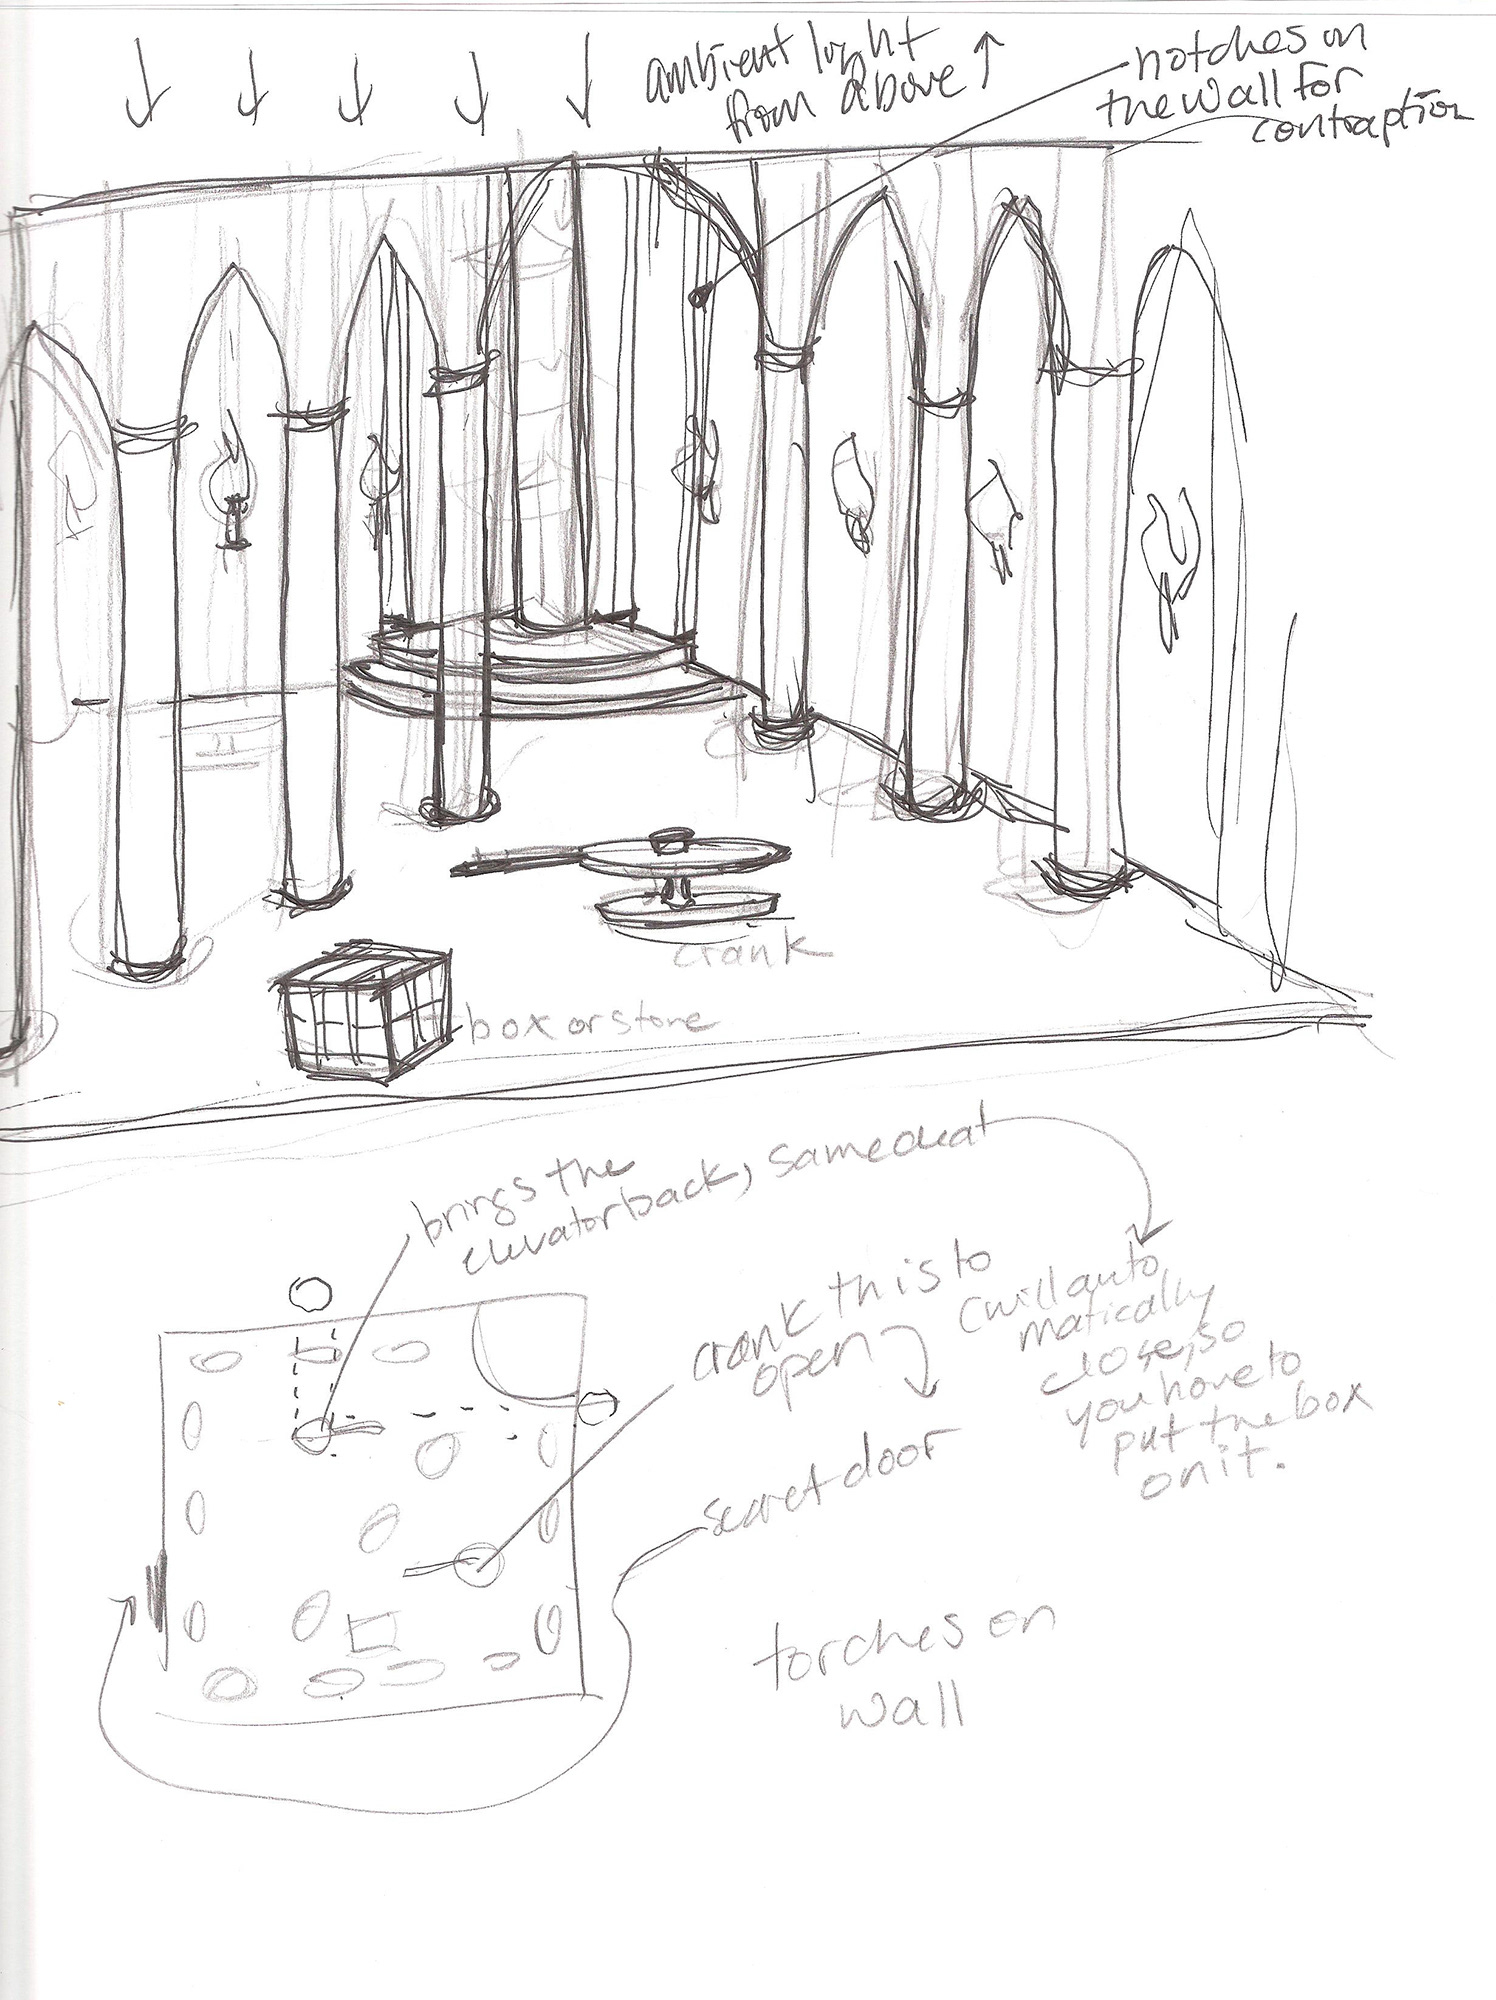 ambient light
from above
notches on
the wall for
contraption
crank
box or stone
brings the
elevator back, same deal
crank this to
open
(will auto
matically
close, so
you have to
put the box
on it.
secret door
torches on
wall